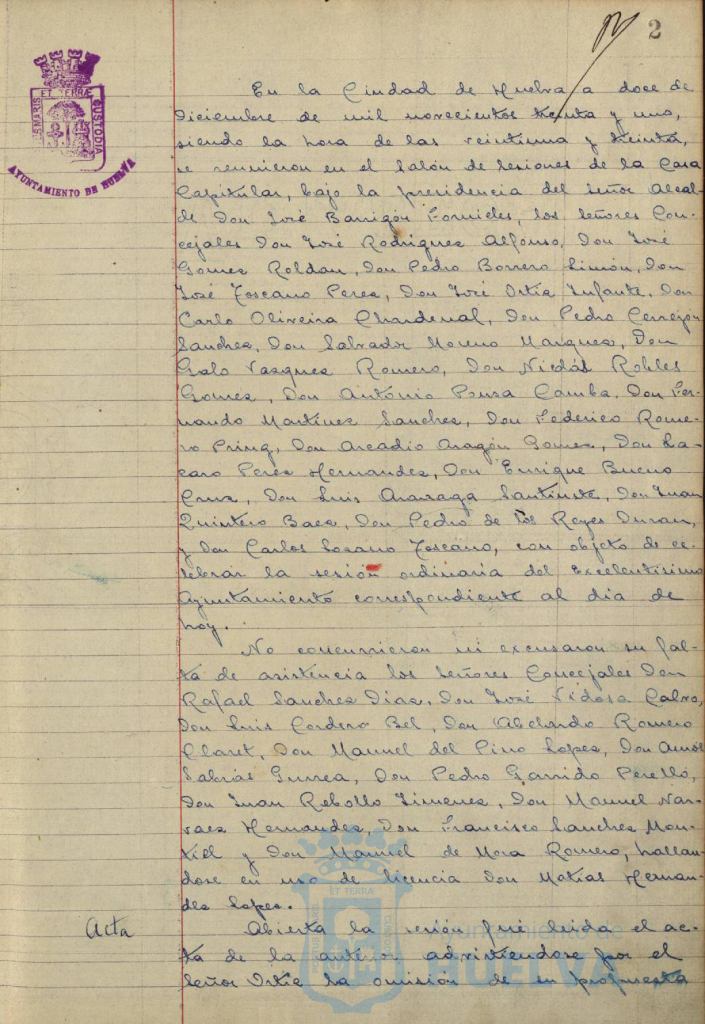 2
ET TERRÆ
MARIS
CUSTODIA
AYUNTAMIENTO DE HUELVA
En la Ciudad de Huelva a doce de
Diciembre de mil novecientos treinta y uno,
siendo la hora de las veintiuna y treinta,
se reunieron en el Salón de Sesiones de la Casa
Capitular, bajo la presidencia del Señor Alcal-
de Don José Barrigón Fornieles, los Señores Con-
cejales Don José Rodriguez Alfonso, Don José
Gomez Roldan, Don Pedro Borrero Limón, Don
José Toscano Perez, Don José Ortiz Infante, Don
Carlo Oliveira Chardenal, Don Pedro Cerrejon
Sanchez, Don Salvador Moreno Marquez, Don
Galo Vazquez Romero, Don Nicolás Robles
Gomez, Don Antonio Ponza Camba, Don Fer-
nando Martinez Sanchez, Don Federico Rome-
ro Pring, Don Arcadio Aragón Gomez, Don La-
zaro Perez Hernandez, Don Enrique Bueno
Cruz, Don Luis Don Juan
Quintero Baez, Don Pedro de los Reyes Duran,
y Don Carlos Lozano Toscano, con objeto de ce-
lebrar la sesión ordinaria del Excelentisimo
Ayuntamiento correspondiente al dia de
hoy.
No concurrieron ni excusaron su fal-
ta de asistencia los Señores Concejales Don
Rafael Sanchez Diaz, Don José Vidosa Calvo,
Don Luis Cordero Bel, Don Abelardo Romero
Claret, Don Manuel del Pino Lopez, Don Amós
Sabrás Gurrea, Don Pedro Garrido Perelló,
Don Juan Rebollo Jimenez, Don Manuel Nar-
vaez Hernandez, Don Francisco Sanchez Mon-
tiel y Don Manuel de Mora Romero, hallan-
dose en uso de licencia Don Matias Hernan-
dez Lopez.
Acta
Abierta la sesión fué leida el ac-
ta de la anterior advirtiendose por el
Señor Ortiz la omisión de su propuesta
Ayuntamiento de
HUELVA